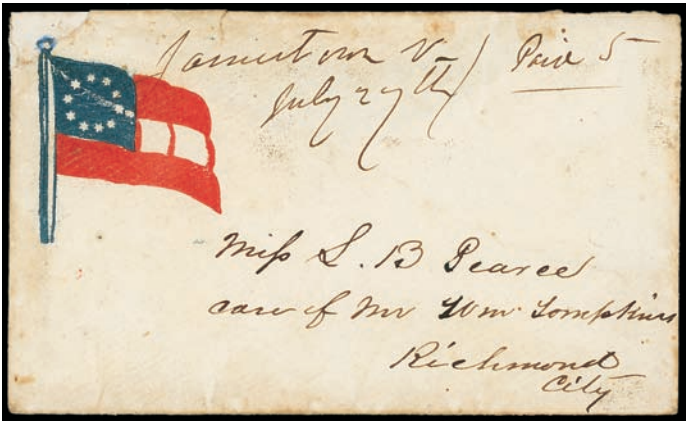 Jamestown Va Paid 5
July 27th
Miss L. B Pearce
care of Mr Wm Tompkins
Richmond
City